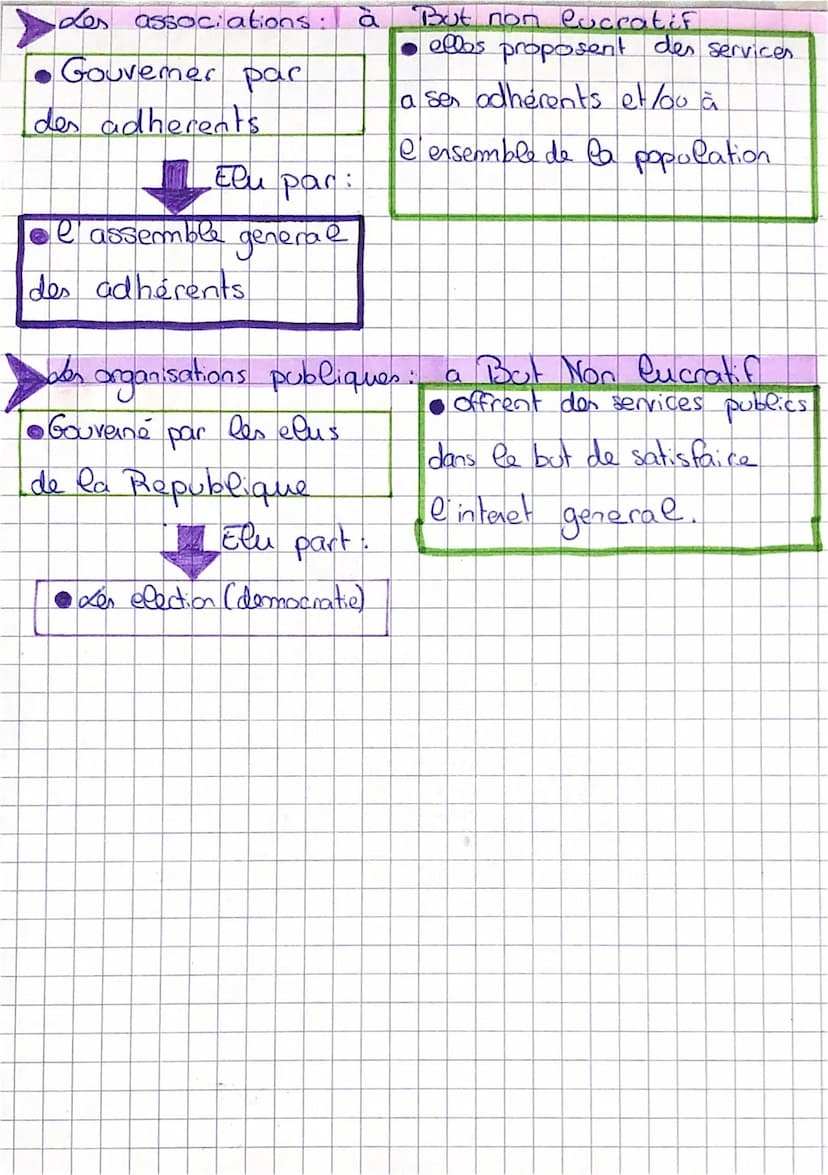 Les associations: à But non lucratif
• Gouverner par
des adherents
Elu par:
• l'assemble general
des adhérents
• elles proposent des services
a ses adhérents et/ou à
l'ensemble de la population
Les organisations publiques: a But Non lucratif
• Gouverné par les elus
de la Republique
Elu part:
• Les election (democratie)
• offrent des services publics
dans le but de satisfaire
l'interet general.